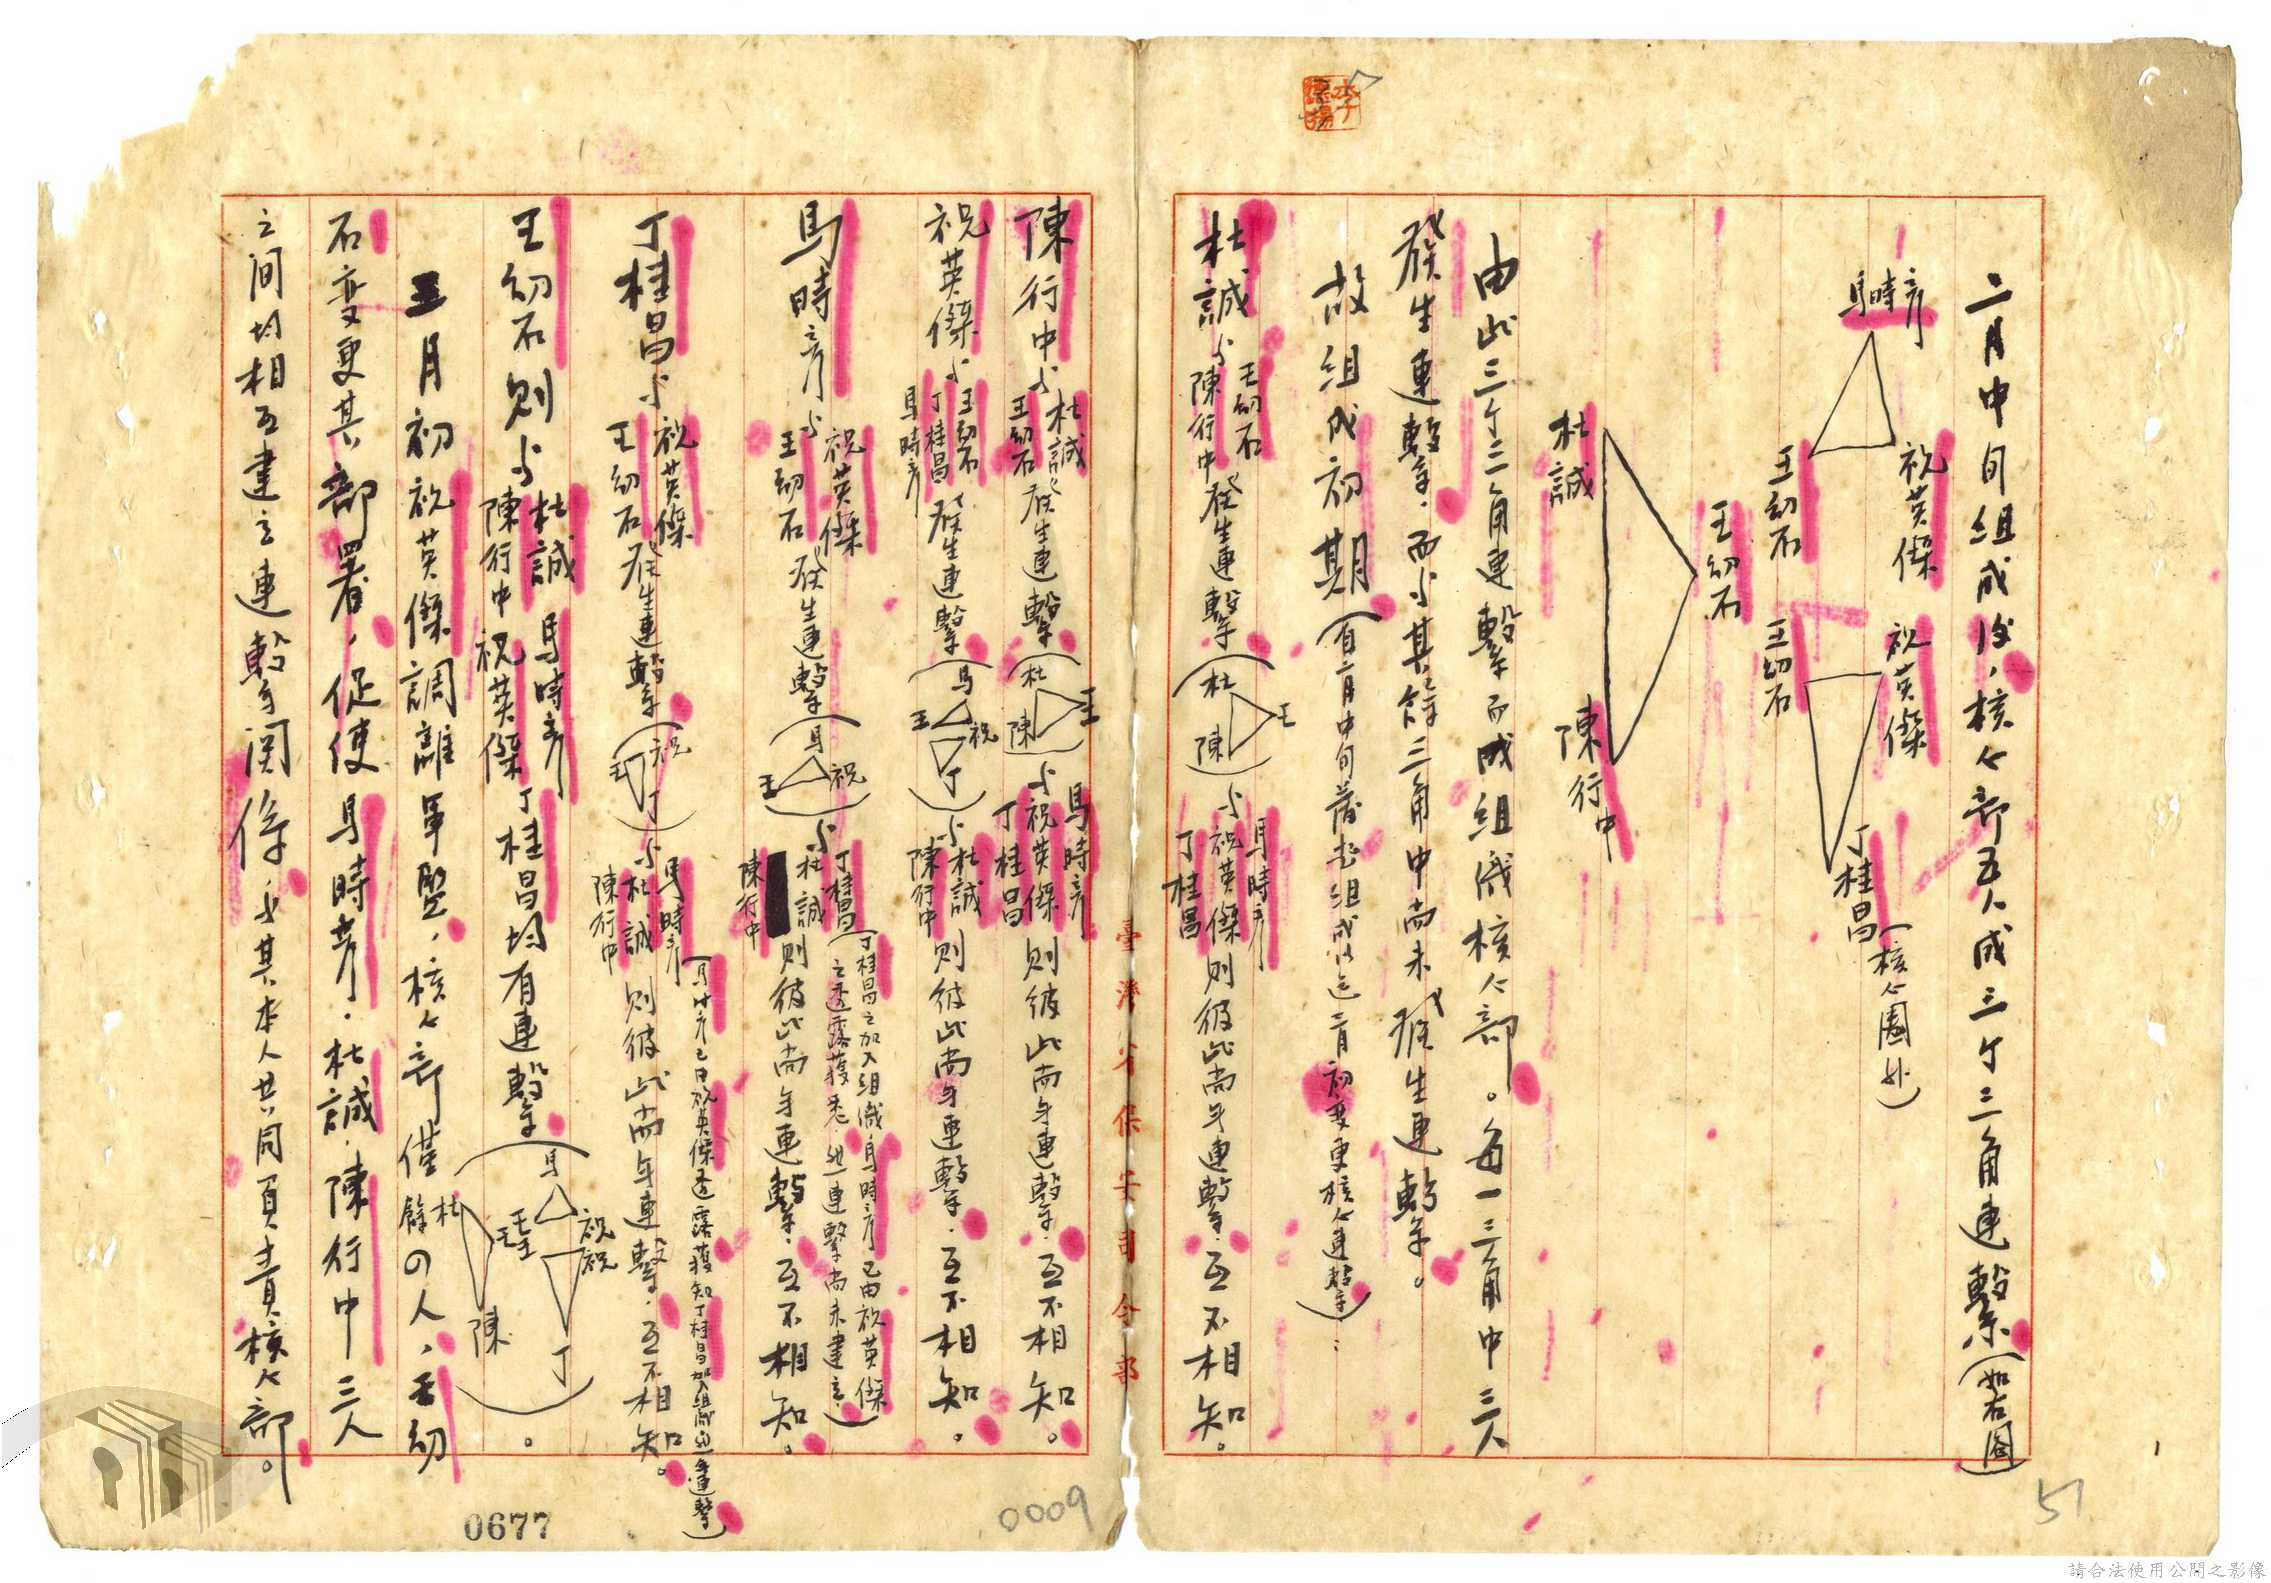 二月中旬組成後，核心部五人成三个三角連繫（如右圖）
馬時彥
王幼石
祝英傑
祝英傑
王幼石
丁桂昌（核心圈外）
王幼石
杜誠
陳行中
由此三个三角連繫而成組織核心部。每一三角中三人
發生連繫，而与其餘三角中尚未發生連繫。
故組成初期（自二月中旬
組成以迄三月初變更核心連繫）：
杜誠与王幼石 陳行中發生連繫（杜 陳 王）与馬時彥 祝英傑 丁桂昌則彼此尚無連繫，互不相知。
臺灣省保安司令部
陳行中与杜誠 王幼石發生連繫（杜 陳 王）与馬時彥 祝英傑 丁桂昌則彼此尚無連繫，互不相知。
祝英傑与王幼石 丁桂昌 馬時彥發生連繫（馬 王 祝 丁）与杜誠 陳行中則彼此尚無連繫，互不相知。
馬時彥与祝英傑 王幼石發生連繫（馬 王 祝）与丁桂昌（丁桂昌之加入組織，馬時彥已由祝英傑之透露獲悉，但連繫尚未建立） 杜誠 陳行中則彼此尚無連繫，互不相知。
丁桂昌与祝英傑 王幼石發生連繫（祝 王 丁）与馬時彥
祝英傑透露獲知丁桂昌加入組織但無連繫） 杜誠 陳行中則彼此尚無連繫，互不相知。
王幼石則与杜誠 陳行中 馬時彥 祝英傑 丁桂昌均有連繫（馬 杜 王 王 王 祝 祝 陳 丁）。
三月初祝英傑調離軍盤，核心部僅餘四人，王幼
石變更其部署，促使馬時彥，杜誠，陳行中三人
之間均相互建立連繫關係，与其本人共同負責核心部。
0677
0009
51
請合法使用公開之影像